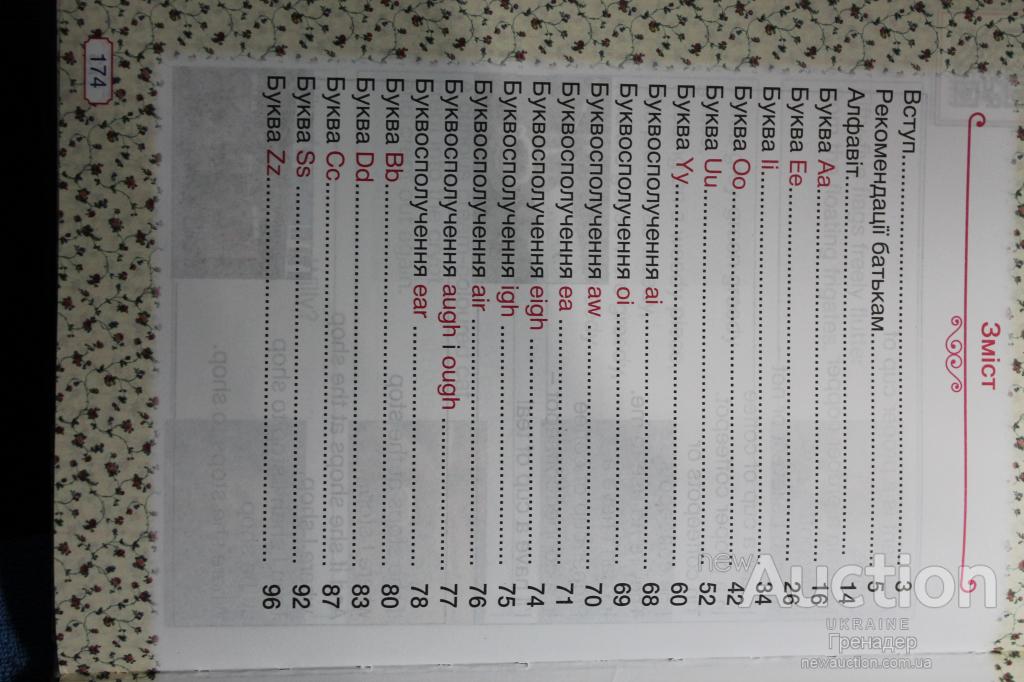 Зміст
Вступ........ 3
Рекомендації батькам........ 5
Алфавіт........ 14
Буква Aa........ 16
Буква Ee........ 26
Буква Ii........ 34
Буква Oo........ 42
Буква Uu........ 52
Буква Yy........ 60
Буквосполучення ai........ 68
Буквосполучення oi........ 69
Буквосполучення aw........ 70
Буквосполучення ea........ 71
Буквосполучення eigh........ 74
Буквосполучення igh........ 75
Буквосполучення air........ 76
Буквосполучення augh і ough........ 77
Буквосполучення ear........ 78
Буква Bb........ 80
Буква Dd........ 83
Буква Cc........ 87
Буква Ss........ 92
Буква Zz........ 96
174
newAuction
UKRAINE
Гренадер
newauction.com.ua